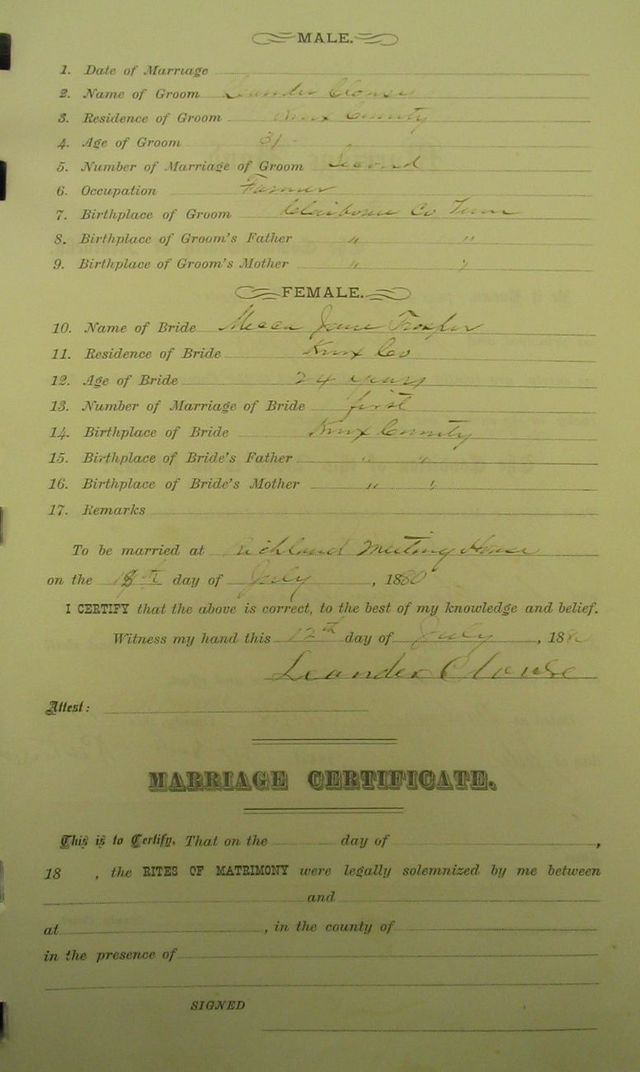 MALE.
1. Date of Marriage
2. Name of Groom Leander Clouse
3. Residence of Groom Knox County
4. Age of Groom 31
5. Number of Marriage of Groom Second
6. Occupation Farmer
7. Birthplace of Groom Claiborne Co Tenn
8. Birthplace of Groom's Father " "
9. Birthplace of Groom's Mother " "
FEMALE.
10. Name of Bride Jane
11. Residence of Bride Knox Co
12. Age of Bride 24 years
13. Number of Marriage of Bride first
14. Birthplace of Bride Knox County
15. Birthplace of Bride's Father " "
16. Birthplace of Bride's Mother " "
17. Remarks
To be married at Richland Meeting House
on the day of July, 1880
I CERTIFY that the above is correct, to the best of my knowledge and belief.
Witness my hand this 12th day of July, 188
Leander Clouse
Attest:
MARRIAGE CERTIFICATE.
This is to Certify, That on the day of ,
18 , the RITES OF MATRIMONY were legally solemnized by me between
and
at , in the county of
in the presence of
SIGNED